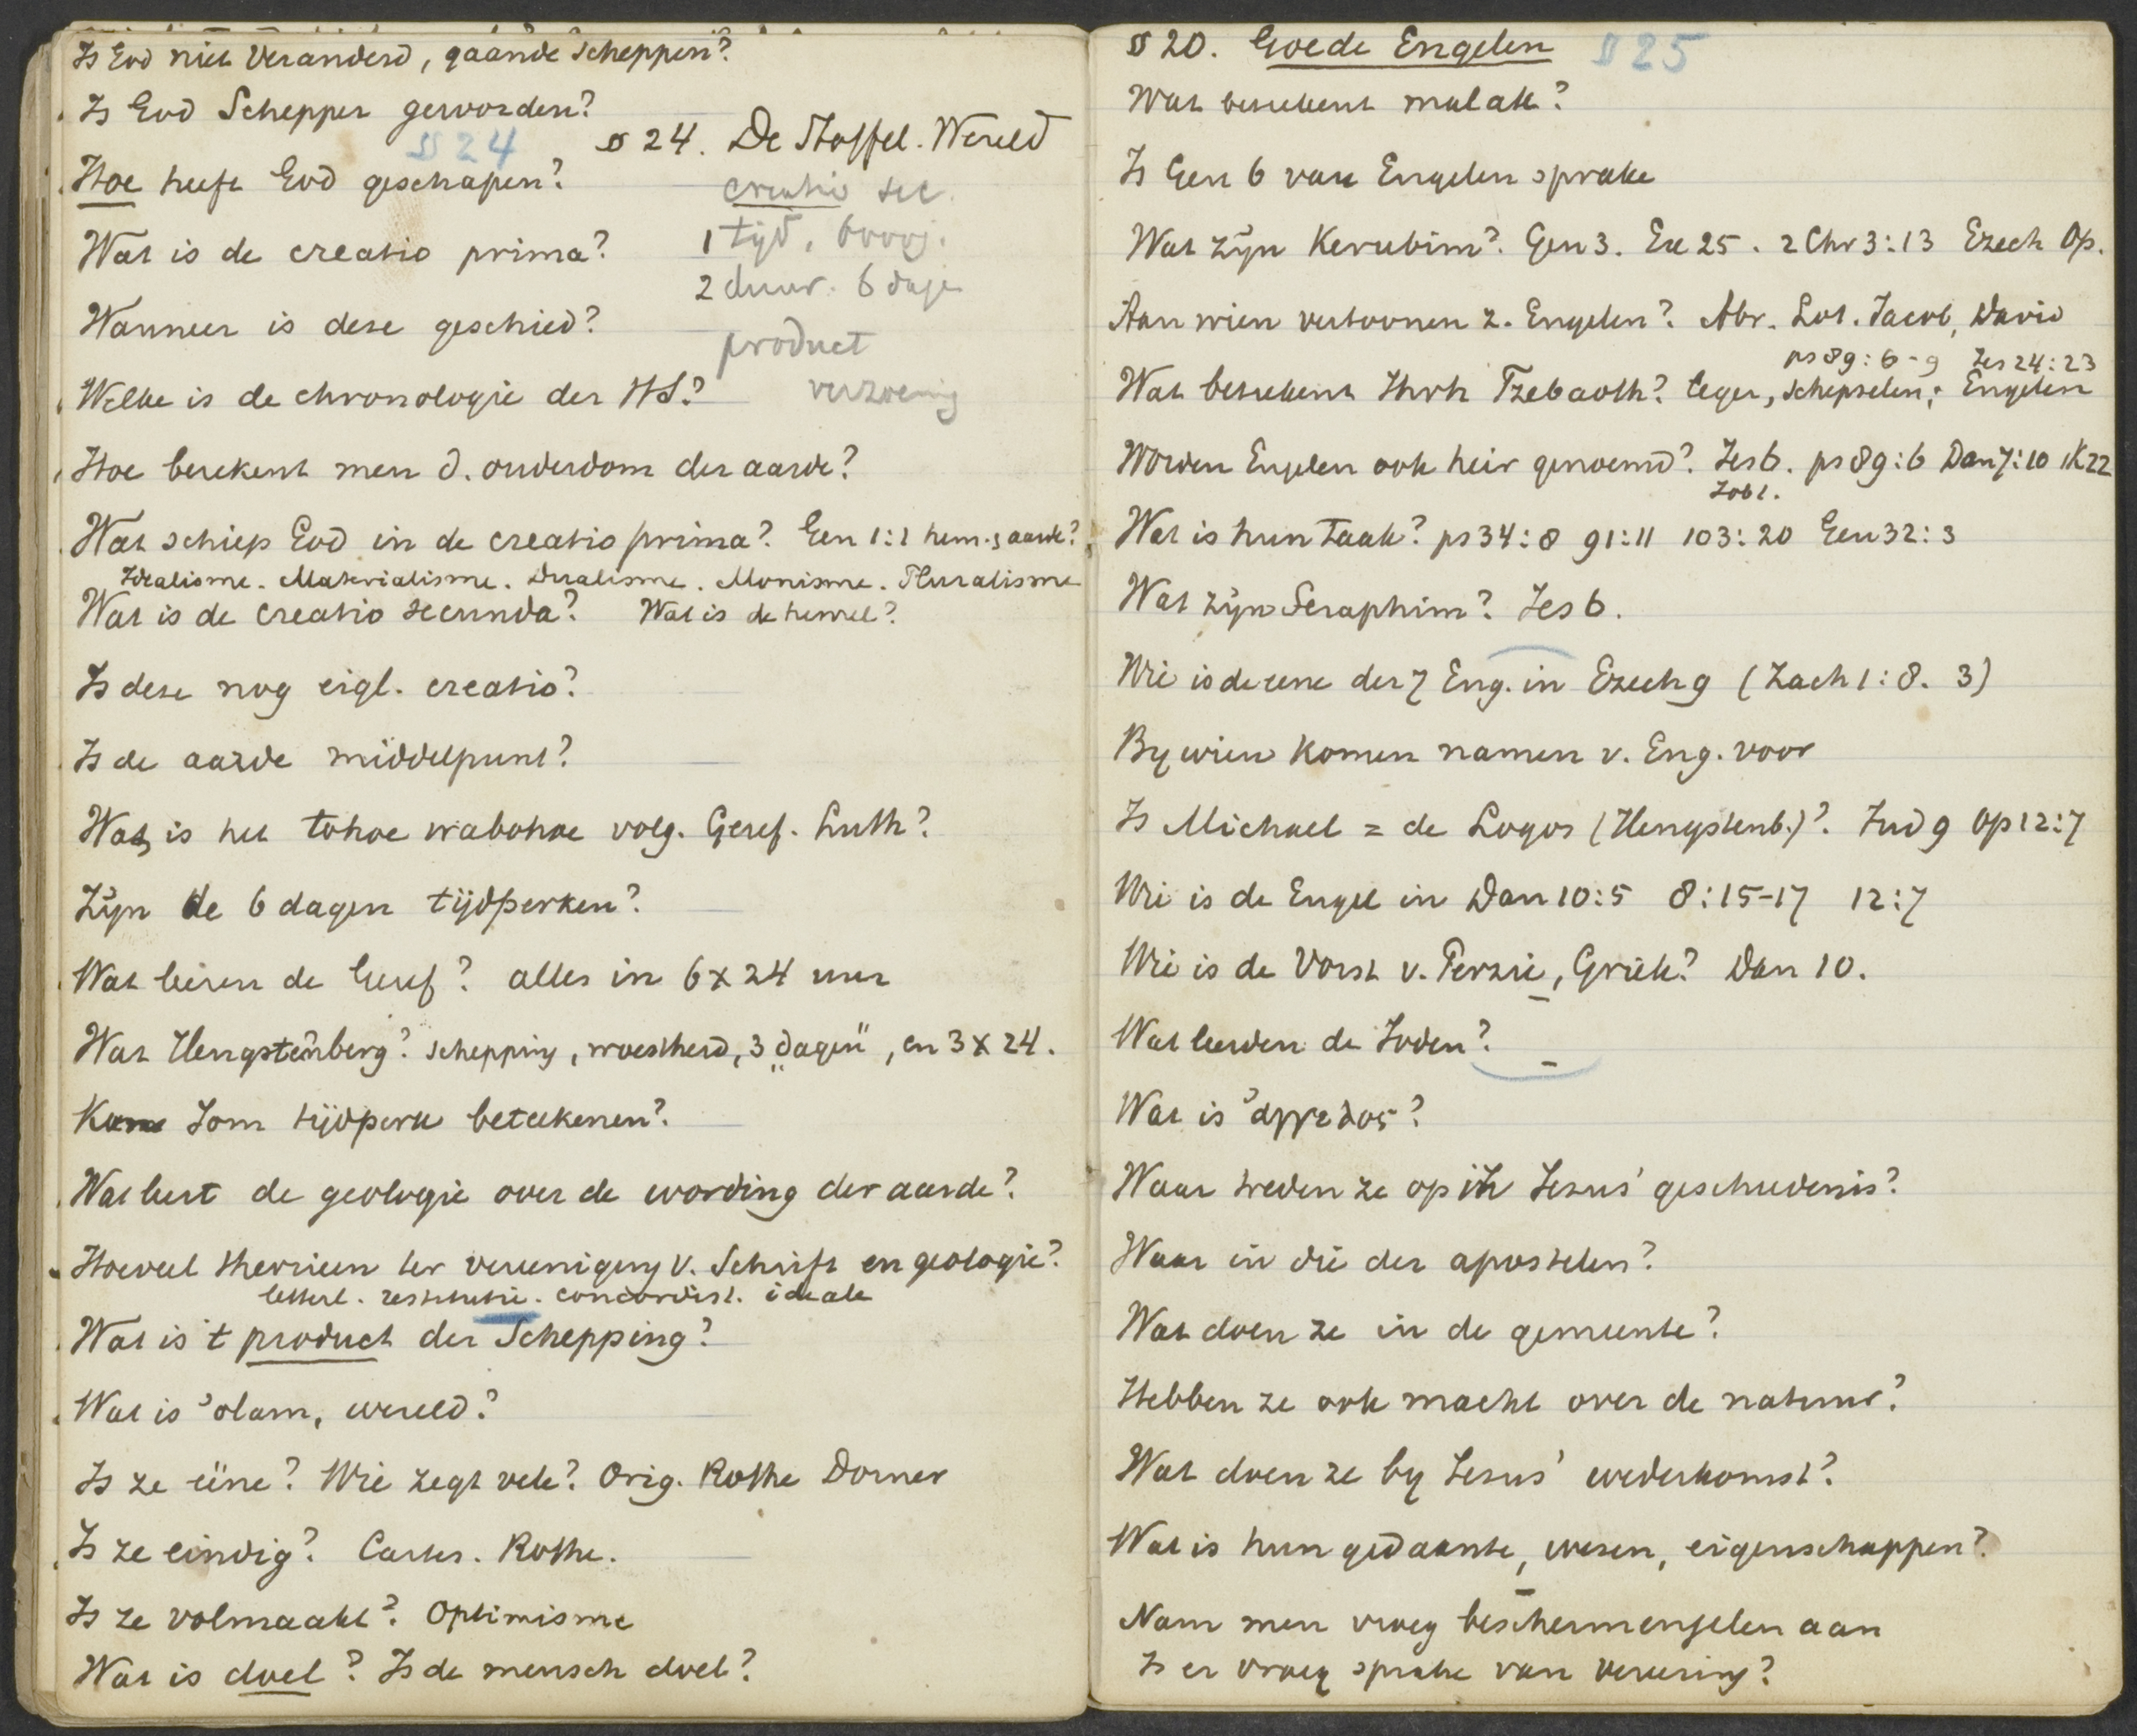 Is God niet Veranderd, gaande Scheppen?
Is God Schepper geworden?
§ 24
§ 24. De Stoffel. Wereld
Hoe heeft God geschapen?
creatio sec.
Wat is de creatio prima?
1 tijd, 6000 j.
2 duur. 6 dage
Wanneer is deze geschied?
product
Welke is de chronologie der HS?
Hoe berekent men d. ouderdom der aarde?
Wat schiep God in de creatio prima? Gen 1:1 hem. aarde?
Idealisme. Materialisme. Dualisme. Monisme. Pluralisme
Wat is de creatio secunda? Wat is de hemel?
Is deze nog eigl. creatio?
Is de aarde middelpunt?
Wat is het tohoe wabohoe volg. Geref. Luth?
Zijn de 6 dagen tijdperken?
Wat leeren de Geref? alles in 6 x 24 uur
Wat Hengstenberg? schepping, woestheid, 3 „dagen", en 3 x 24.
Kan Jom tijdperk beteekenen?
Wat leert de geologie over de wording der aarde?
Hoeveel theorieen ter vereeniging v. Schrift en geologie?
letterl. restitutie. concordist. ideale
Wat is 't product der Schepping?
Wat is 'olam, wereld?
Is ze ééne? Wie zegt vele? Orig. Rothe Dorner
Is ze eindig? Cartes. Rothe.
Is ze volmaakt? Optimisme
Wat is doel? Is de mensch doel?
§ 20. Goede Engelen § 25
Wat beteekent malak?
Is Gen 6 van Engelen sprake
Wat zijn Kerubim? Gen 3. Ex 25. 2 Chr 3:13 Ezech Op.
Aan wien vertoonen z. Engelen? Abr. Lot. Jacob, David
ps 89:6-9 Jes 24:23
Wat beteekent Jhvh Tzebaoth? leger, schepselen; Engelen
Worden Engelen ook heir genoemd? Jes 6. ps 89:6 Dan 7:10 1K22
Job 1.
Wat is hun taak? ps 34:8 91:11 103:20 Gen 32:3
Wat zijn Seraphim? Jes 6.
Wie is de eene der 7 Eng. in Ezech 9 (Zach 1:8. 3)
By wien komen namen v. Eng. voor
Is Michael = de Logos (Hengstenb.)? Jud 9 Op 12:7
Wie is de Engel in Dan 10:5 8:15-17 12:7
Wie is de Vorst v. Perzie, Griek? Dan 10.
Wat leerden de Joden?
Wat is ἀγγελος?
Waar treden ze op in Jezus' geschiedenis?
Waar in die der apostelen?
Wat doen ze in de gemeente?
Hebben ze ook macht over de natuur?
Wat doen ze by Jezus' wederkomst?
Wat is hun gedaante, wezen, eigenschappen?
Nam men vroeg beschermengelen aan
Is er vroeg sprake van vereering?